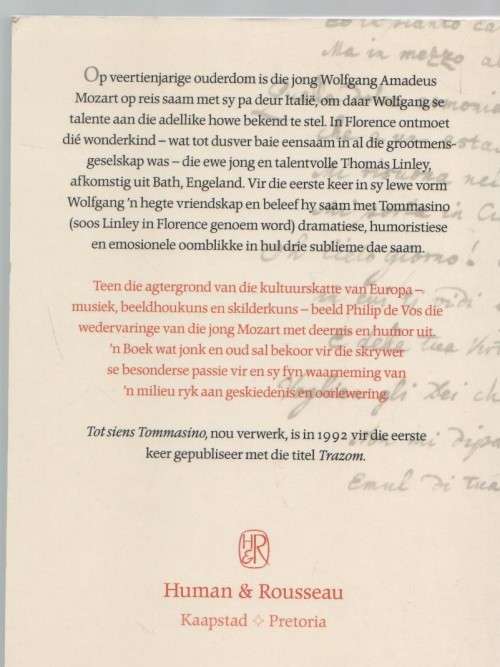 Op veertienjarige ouderdom is die jong Wolfgang Amadeus
Mozart op reis saam met sy pa deur Italië, om daar Wolfgang se
talente aan die adellike howe bekend te stel. In Florence ontmoet
dié wonderkind – wat tot dusver baie eensaam in al die grootmens-
geselskap was – die ewe jong en talentvolle Thomas Linley,
afkomstig uit Bath, Engeland. Vir die eerste keer in sy lewe vorm
Wolfgang 'n hegte vriendskap en beleef hy saam met Tommasino
(soos Linley in Florence genoem word) dramatiese, humoristiese
en emosionele oomblikke in hul drie sublieme dae saam.
Teen die agtergrond van die kultuurskatte van Europa –
musiek, beeldhoukuns en skilderkuns – beeld Philip de Vos die
wedervaringe van die jong Mozart met deernis en humor uit.
'n Boek wat jonk en oud sal bekoor vir die skrywer
se besonderse passie vir en sy fyn waarneming van
'n milieu ryk aan geskiedenis en oorlewering.
Tot siens Tommasino, nou verwerk, is in 1992 vir die eerste
keer gepubliseer met die titel Trazom.
H&R
Human & Rousseau
Kaapstad ✧ Pretoria
Ma in mezzo
giorno!
Dei
mi
Emul di tua